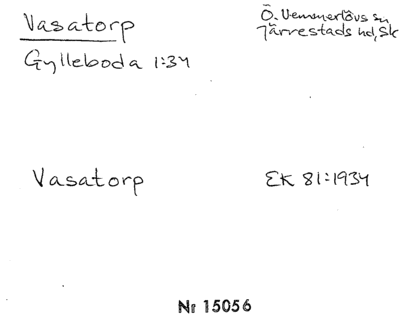 Vasatorp
Ö. Vemmerlövs sn
Järrestads hd, Sk
Gylleboda 1:34
Vasatorp
EK 81:1934
Nr 15056